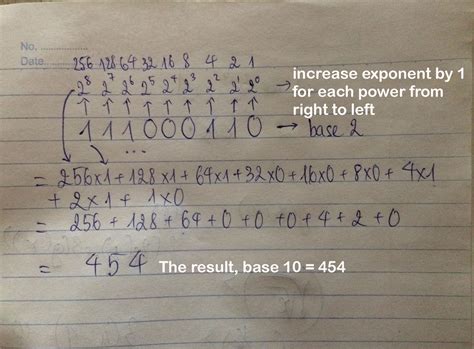 No. ..............
Date ..............
256 128 64 32 16 8 4 2 1
2⁸ 2⁷ 2⁶ 2⁵ 2⁴ 2³ 2² 2¹ 2⁰ →
increase exponent by 1
for each power from
right to left
↑ ↑ ↑ ↑ ↑ ↑ ↑ ↑
1 1 1 0 0 0 1 1 0 → base 2
...
= 256x1 + 128x1 + 64x1 + 32x0 + 16x0 + 8x0 + 4x1
+ 2x1 + 1x0
= 256 + 128 + 64 + 0 + 0 + 0 + 4 + 2 + 0
= 454 The result, base 10 = 454